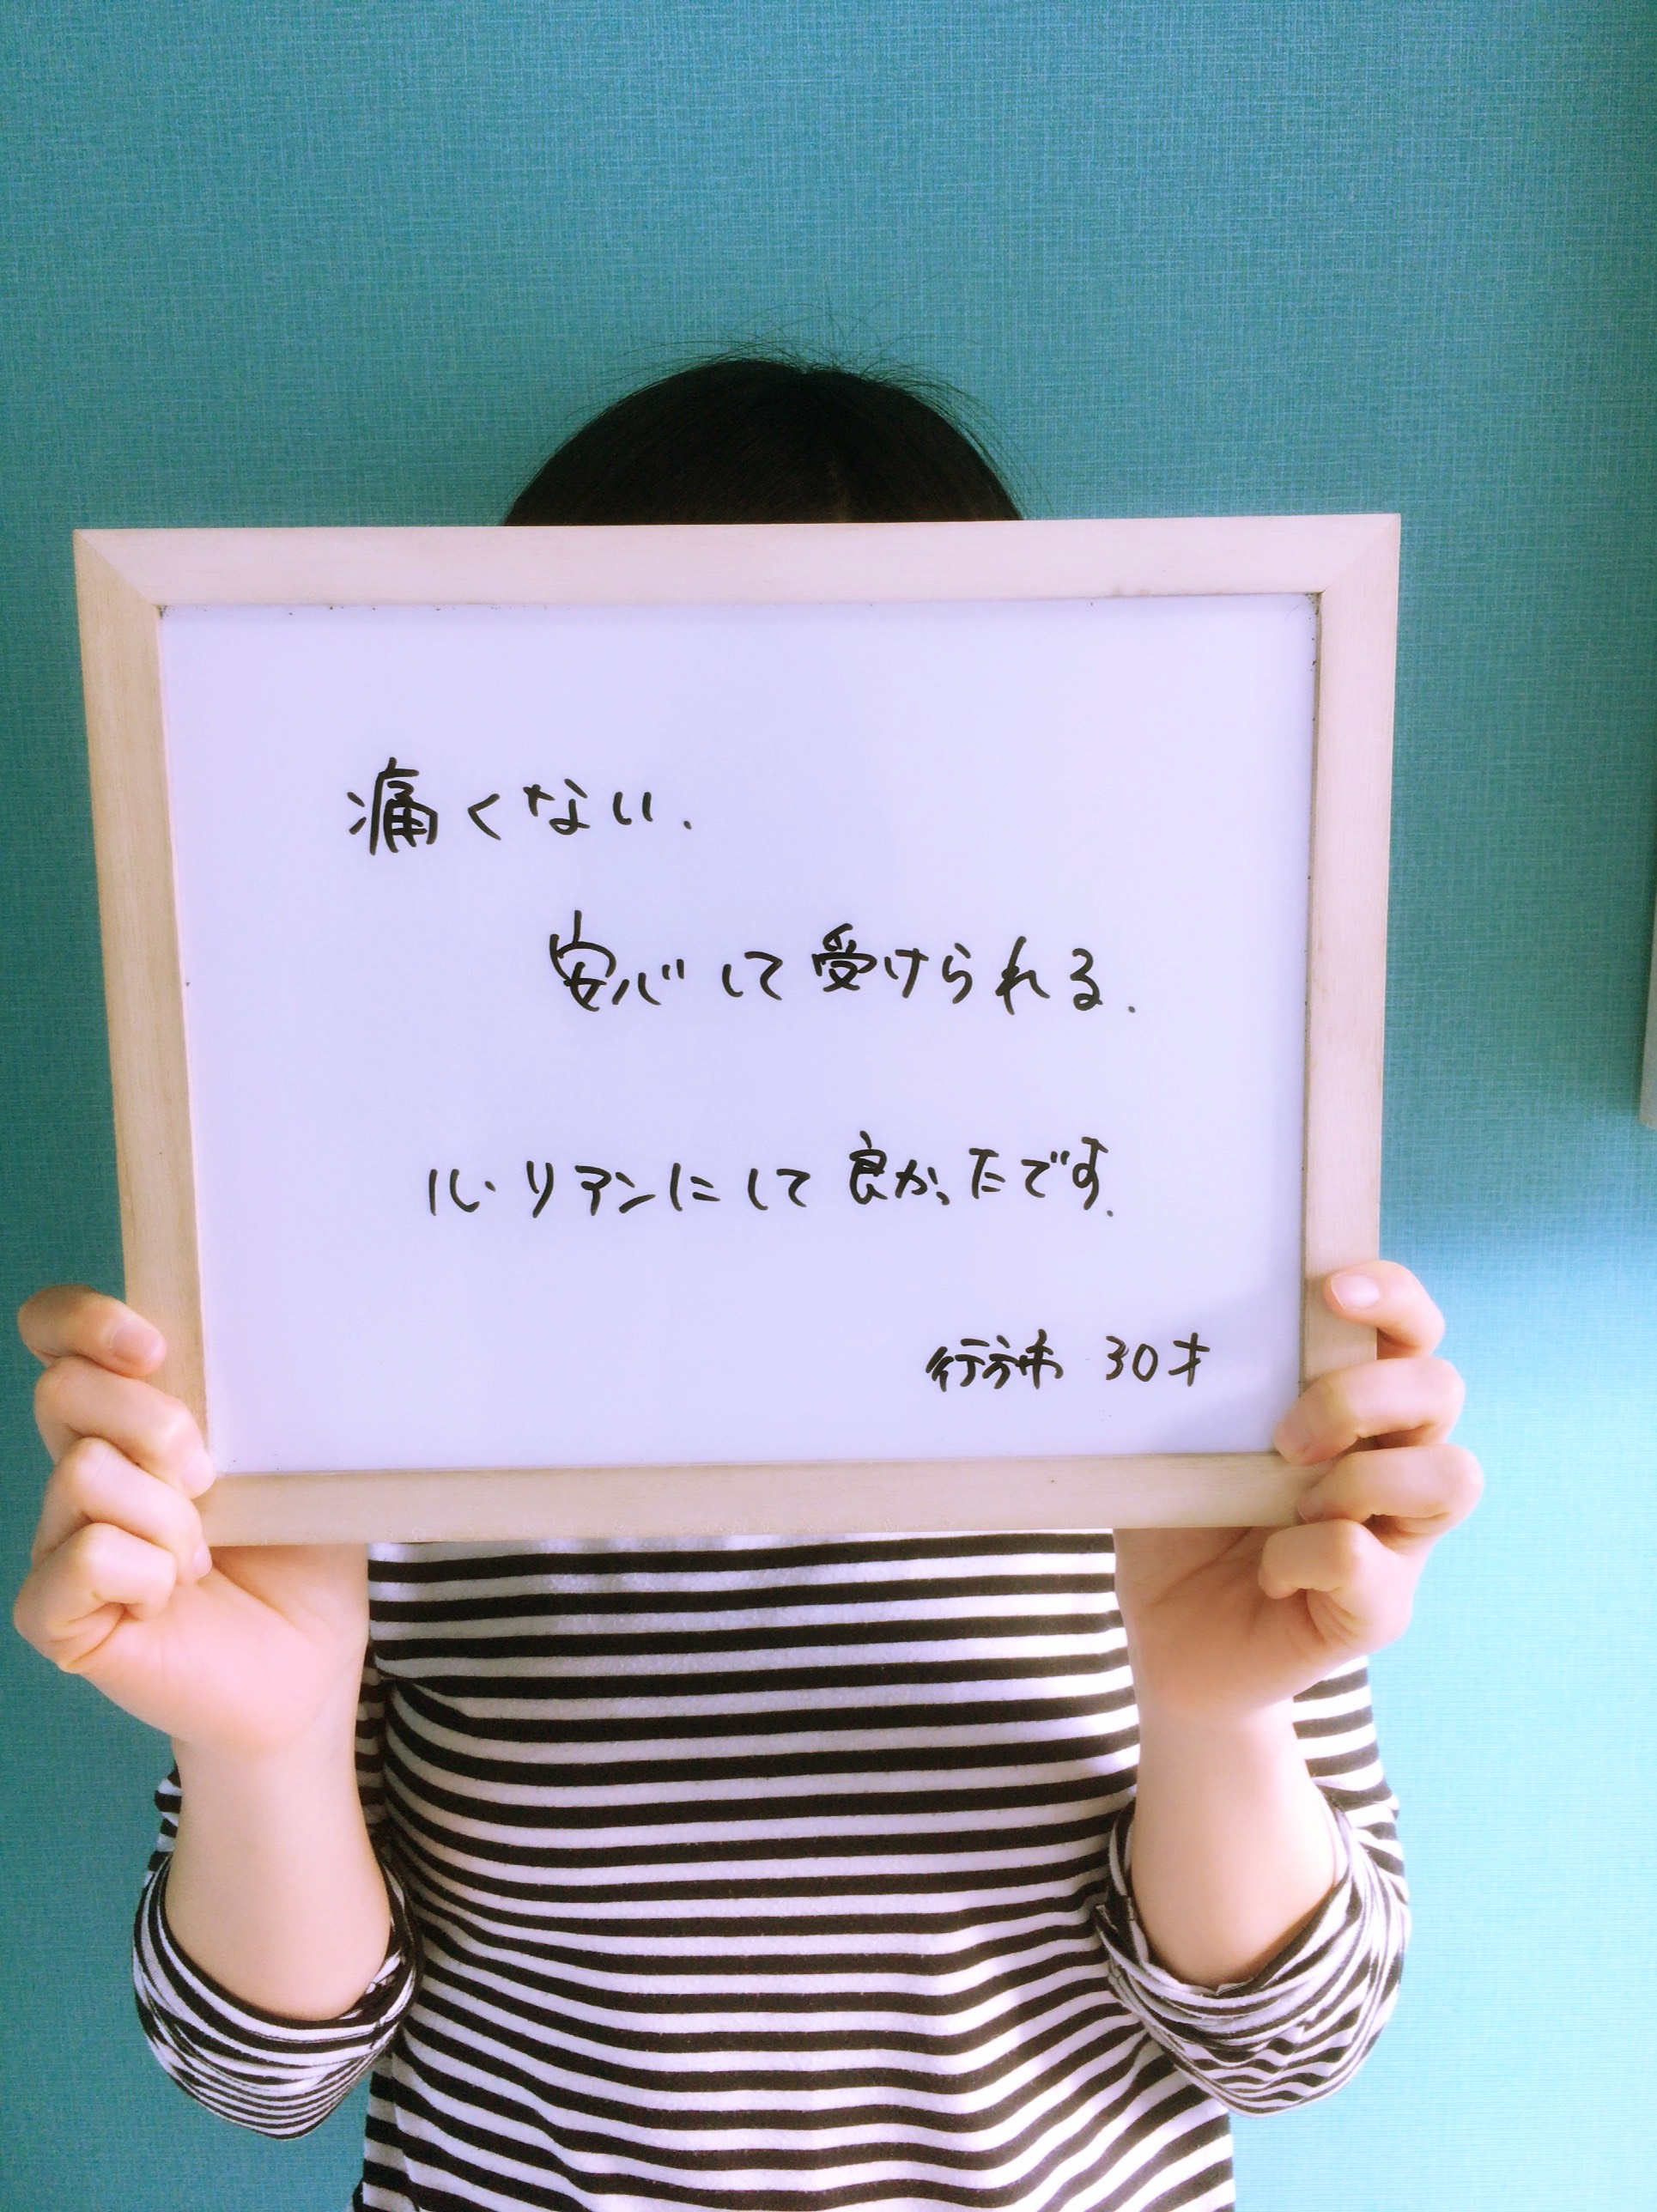 痛くない.
安心して受けられる.
ル・リアンにして良かったです.
行方市 30才